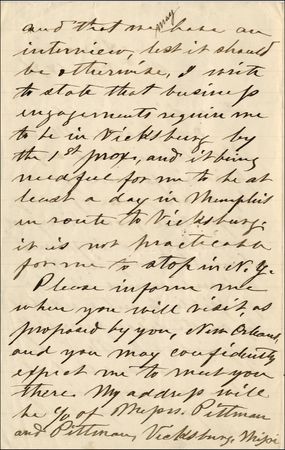 and that we may have an
interview, lest it should
be otherwise, I write
to state that business
engagements require me
to be in Vicksburg by
the 1st prox, and it being
needful for me to be at
least a day in Memphis
in route to Vicksburg
it is not practicable
for me to stop in N. Y.
Please inform me
when you will visit, as
proposed by you, New Orleans,
and you may confidently
expect me to meet you
there. My address will
be c/o of Messrs. Pittman
and Pittman, Vicksburg, Missi